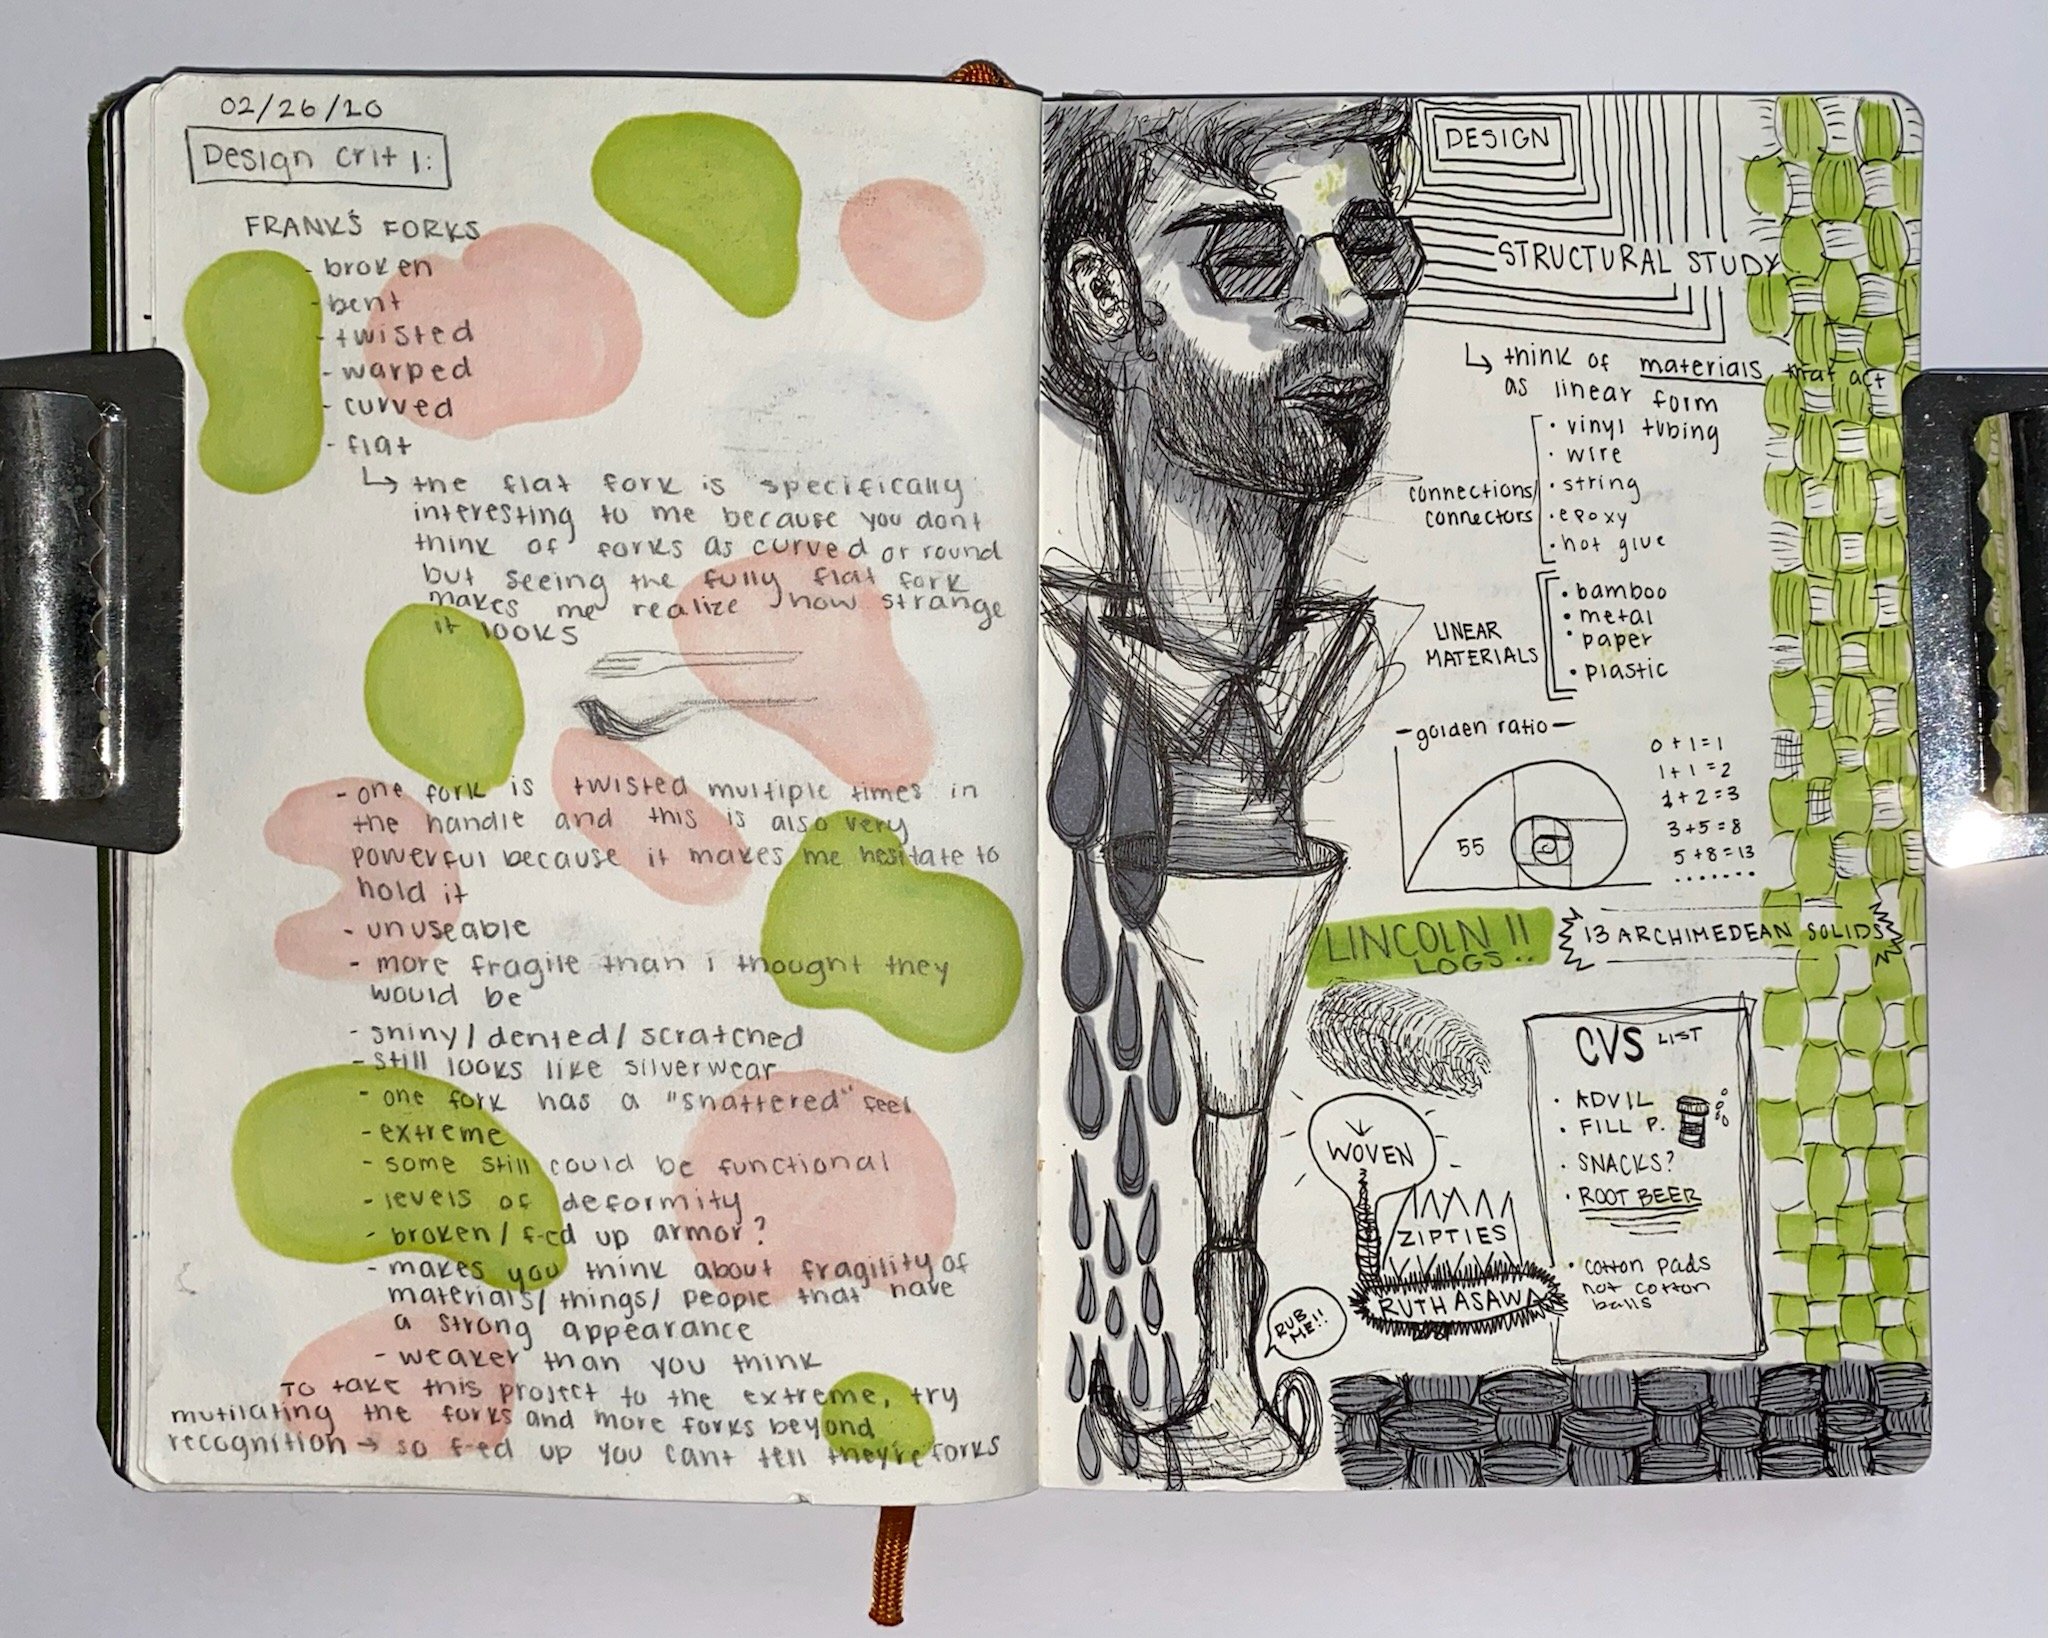 02/26/20
Design crit 1:
FRANK'S FORKS
- broken
- bent
- twisted
- warped
- curved
- flat
↳ the flat fork is specifically
interesting to me because you dont
think of forks as curved or round
but seeing the fully flat fork
makes me realize how strange
it looks
- one fork is twisted multiple times in
the handle and this is also very
powerful because it makes me hesitate to
hold it
- unuseable
- more fragile than i thought they
would be
- shiny/dented/scratched
- still looks like silverwear
- one fork has a "shattered" feel
- extreme
- some still could be functional
- levels of deformity
- broken/f-ed up armor?
- makes you think about fragility of
materials/things/people that have
a strong appearance
- weaker than you think
To take this project to the extreme, try
mutilating the forks and more forks beyond
recognition → so f-ed up you cant tell they're forks
DESIGN
STRUCTURAL STUDY
↳ think of materials that act
as linear form
connections/
connectors
• vinyl tubing
• wire
• string
• epoxy
• hot glue
LINEAR
MATERIALS
• bamboo
• metal
• paper
• plastic
- golden ratio -
55
0+1=1
1+1=2
1+2=3
3+5=8
5+8=13
.......
LINCOLN !!
LOGS..
13 ARCHIMEDEAN SOLIDS
WOVEN
ZIPTIES
RUTH ASAWA
RUB
ME!!
CVS LIST
• ADVIL
• FILL P.
• SNACKS?
• ROOT BEER
• cotton pads
not cotton
balls